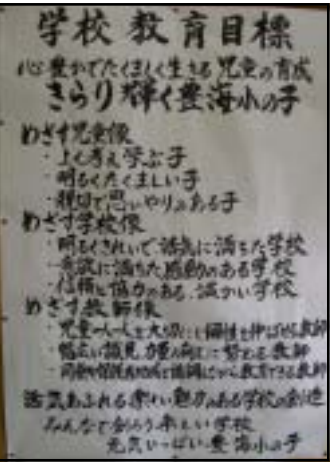 学校教育目標
心豊かでたくましく生きる児童の育成
きらり輝く豊海小の子
めざす児童像
・よく考え学ぶ子
・明るくたくましい子
・親切で思いやりのある子
めざす学校像
・明るくきれいで活気に満ちた学校
・意欲に満ちた感動のある学校
・信頼と協力のある、温かい学校
めざす教師像
・児童一人一人を大切にし個性を伸ばせる教師
・幅広い識見、力量の向上に努める教師
・地域と協調しながら教育できる教師
活気あふれる楽しい魅力ある学校の創造
みんなで創ろう楽しい学校
元気いっぱい豊海小の子